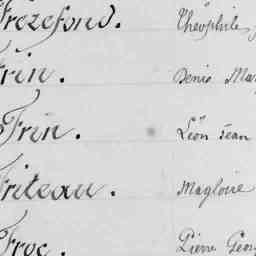 Frezefond. Théophile
Frin. Denis Mar
Frin. Léon Jean
Friteau. Magloire
Froc. Pierre Georg